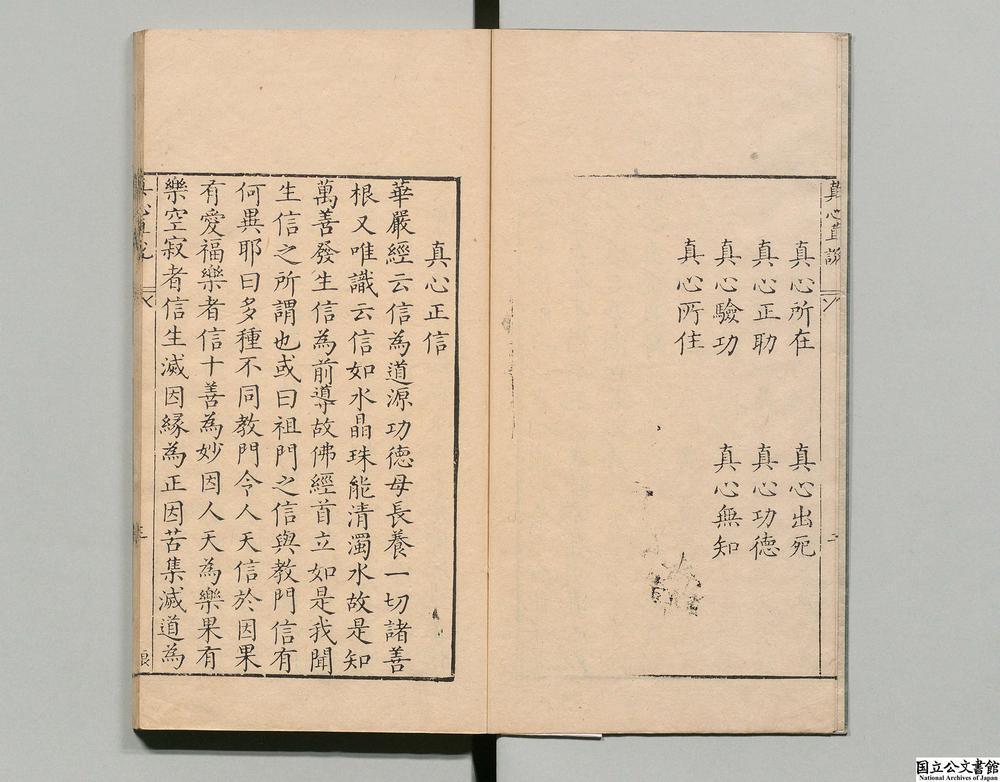 真心直説
二
真心所在
真心出死
真心正助
真心功德
真心驗功
真心無知
真心所住
真心正信
華嚴經云信為道源功德母長養一切諸善
根又唯識云信如水晶珠能清濁水故是知
萬善發生信為前導故佛經首立如是我聞
生信之所謂也或曰祖門之信與教門信有
何異耶曰多種不同教門令人天信於因果
有愛福樂者信十善為妙因人天為樂果有
樂空寂者信生滅因緣為正因苦集滅道為
国立公文書館
National Archives of Japan